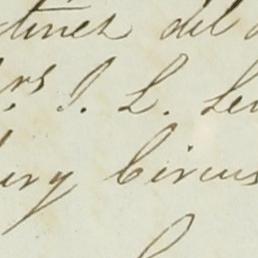 tinet del
rs I. L. Le
ury Circus